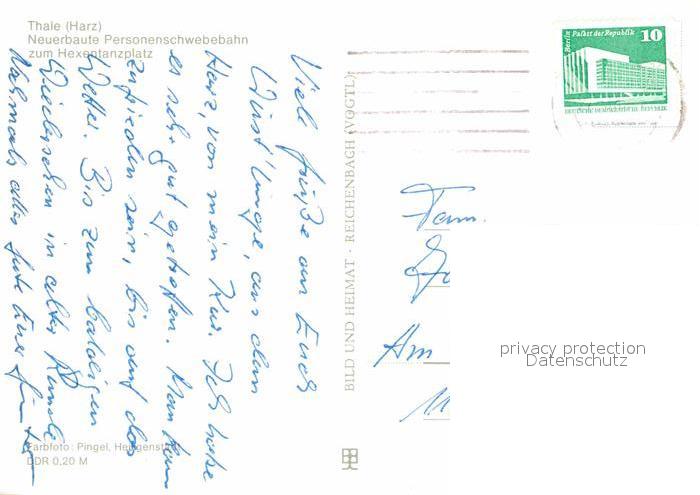 Thale (Harz)
Neuerbaute Personenschwebebahn
zum Hexentanzplatz
Viele Grüße an Euch
aus dem
Harz, von mein Kur. Ich habe
es sehr gut getroffen. Man kann
zufrieden sein, bis auf das
Wetter. Bis zum baldigen
Wiedersehen in alter
Nochmals alles Gute Euer
Farbfoto: Pingel, Heiligenstadt
DDR 0,20 M
BILD UND HEIMAT · REICHENBACH (VOGTL)
Berlin Palast der Republik 10
DEUTSCHE DEMOKRATISCHE REPUBLIK
Fam.
Am
privacy protection
Datenschutz